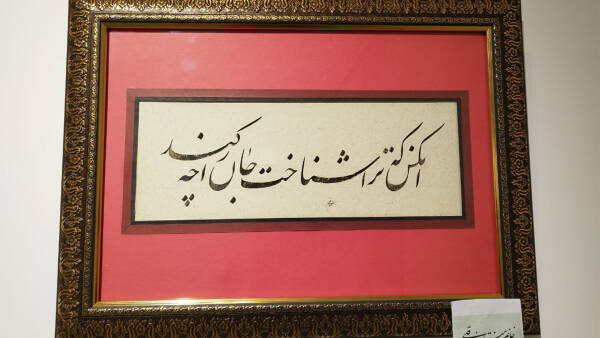 آنکس که ترا شناخت جان را چه کند
خانم